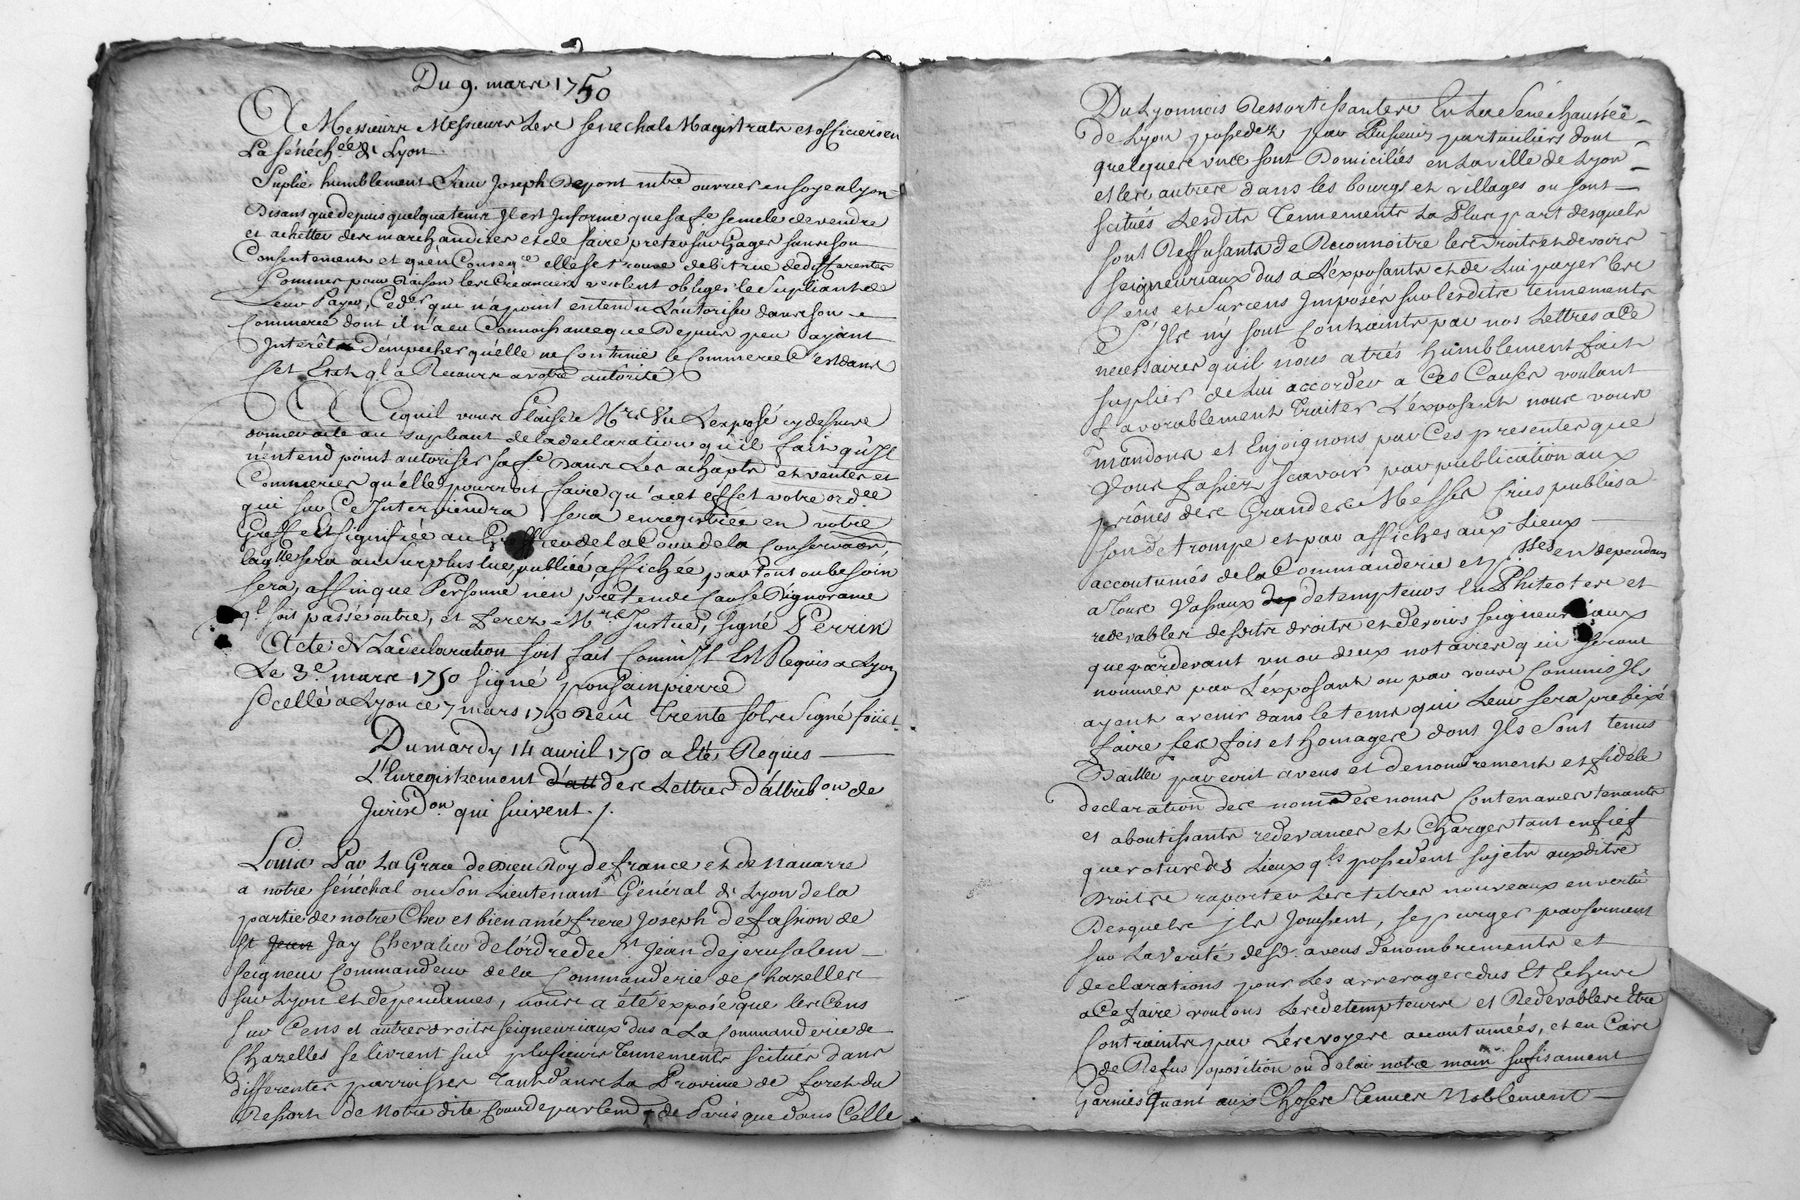 Du 9. mars 1750
A Messieurs Messieurs Les Senechals Magistrats et officiers en
La Sénéch.ée de Lyon
Suplie humblement Sieur Joseph Depont mtre ouvrier en soye a lyon
Disant que depuis quelque tems Il est Informé que sa fe. se mele de vendre
et achetter des marchandises et de faire preter sur Gages sans son
Consentement et qu'en Conseqce. elle se trouve debitrice de differentes
Sommes pour Raison les Créanciers veulent obliger le Supliant de
Leur Payer, Ceder que n'a point entendu L'autoriser dans son
Commerce dont il n'a eu Connoissance que Depuis peu ayant
Interêt D'empecher qu'elle ne Continüe le Commerce C'est dans
Cet Etat ql. a Recours a votre autôrité
A Ce quil vous Plaise Mrs. Vu L'exposé cy dessus
donner acte au supliant de la declaration qu'il fait qu'Il
n'entend point autoriser sa fe. Dans Les achapts et ventes et
Commerces qu'elle pourroit faire qu'a cet effet votre ordce
qui sur Ce Interviendra sera enregistrée en votre
Greffe et signifiée au Greffier de la Cour de la Conservaon,
laqlle sera au Surplus lue publiée affichée partout ou besoin
sera, affin que Personne n'en prétende Cause D'ignorance
ql. soit passé outre, et ferez Mrs. Justice, signé Perrin
Acte de La declaration soit fait Comm'Il Est Requis a Lyon
Le 3e. mars 1750 signé ponsainpierre
Scellé a Lyon ce 7 mars 1750 Reçû Trente sols signé foüet
Du mardy 14 avril 1750 a Eté Requis
L'Enregistrement d'att des Lettres d'attribon de
Jurisdon. qui suivent ./.
Louis Par La Grace de Dieu Roy de france et de Navarre
a notre Sénéchal ou son Lieutenant Général de Lyon de la
partie de notre Cher et bien amé frere Joseph De fassion de
St Jean Jay Chevalier de l'órdre de St. Jean de jerusalem
Seigneur Commandeur de la Commanderie de Chazelles
sur Lyon et dependances, nous a été exposé que les Cens
sur Cens et autres droits seigneuriaux dus a La Commanderie de
Chazelles se livrent sur plusieurs Tennements scitués dans
differentes parroisses tant dans La Province de forets du
Ressort de Notre dite Cour de parlemt. de Paris que dans Celle
Du Lyonnois Ressortissantes En La Sénechaussée
de Lyon possedez par Plusieurs particuliers dont
quelques uns sont Domiciliés en La ville de Lyon
et les autres dans les bourgs et villages ou sont
scitués Lesdits Tennements La Plus part desquels
sont Reffusants de Reconnoitre les Droits et devoirs
seigneuriaux dus a L'exposants et de Lui payer les
Cens et Surcens Imposés sur lesdits tennements
S'Ils n'y sont Contraints par nos Lettres a Ce
necessaires qu'il nous a trés humblement fait
suplier de Lui accorder a Ces Causes voulant
favorablement Traiter L'exposant nous vous
mandons et Enjoignons par Ces presentes que
Vous fassiez scavoir par publication aux
prônes des Grandes Messes Cries publics a
son de trompe et par affiches aux Lieux
accoutumés de la Commanderie et plles en dependans
a Tous Vassaux dep detempteurs Emphiteotes et
redevables desdits droits et devoirs seigneuriaux
que pardevant un ou deux notaires qui seront
nommés par L'exposant ou par vous Commis Ils
ayent avenir dans le tems qui Leur sera prefixé
faire les fois et homages dont Ils sont tenus
Bailler par ecrit aveus et denombrement et fidele
declaration des noms des noms Contenances tenants
et aboutissants redevances et Charges tant en fief
que roture des Lieux qls possedent sujets auxdits
Droits raporter Les titres nouveaux en vertu
Desquels Ils Jouissent, se purger par serment
sur La verité desd. aveus denombrements et
declarations pour Les arrerages dus Et Echus
a Ce faire voulons Les detempteurs et Redevables Etre
Contraints par Les voyes accoutumées, et en Cas
de Refus oposition ou delai notre main sufisament
Garnies Quant aux Choses Tenues Noblement